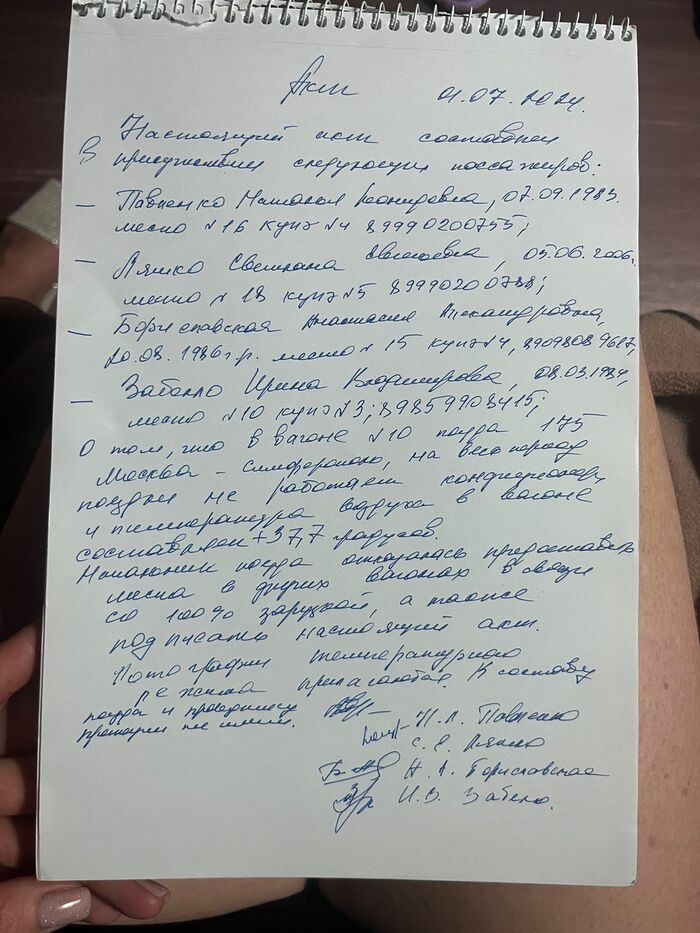 Акт 01.07.2024.
Настоящий акт составлен
В присутствии следующих пассажиров:
— Павленко Наталья Леонидовна, 07.09.1983.
место №16 купэ №4 89990200755;
— Ляшко Светлана Евгеньевна, 05.06.2006г.
место №18 купэ №5 89990200788;
— Бориславская Анастасия Александровна,
20.08.1986г.р. место № 15 купэ №4,
— Забелло Ирина Владимировна, 08.03.1984,
место №10 купэ №3; 89859908415;
О том, что в вагоне №10 поезда 175
Москва - Симферополь, на весь период
поездки не работает кондиционер
и температура воздуха в вагоне
составляет +37,7 градусов.
Начальник поезда отказалась предоставить
места в других вагонах в связи
со 100% загрузкой, а также
подписать настоящий акт.
Фотографии температурного
режима прилагаются. К составу
поезда и проводнику
претензий не имеем.
Н.Л. Павленко
С. Е. Ляшко
Н. А. Бориславская
И.В. Забелло.